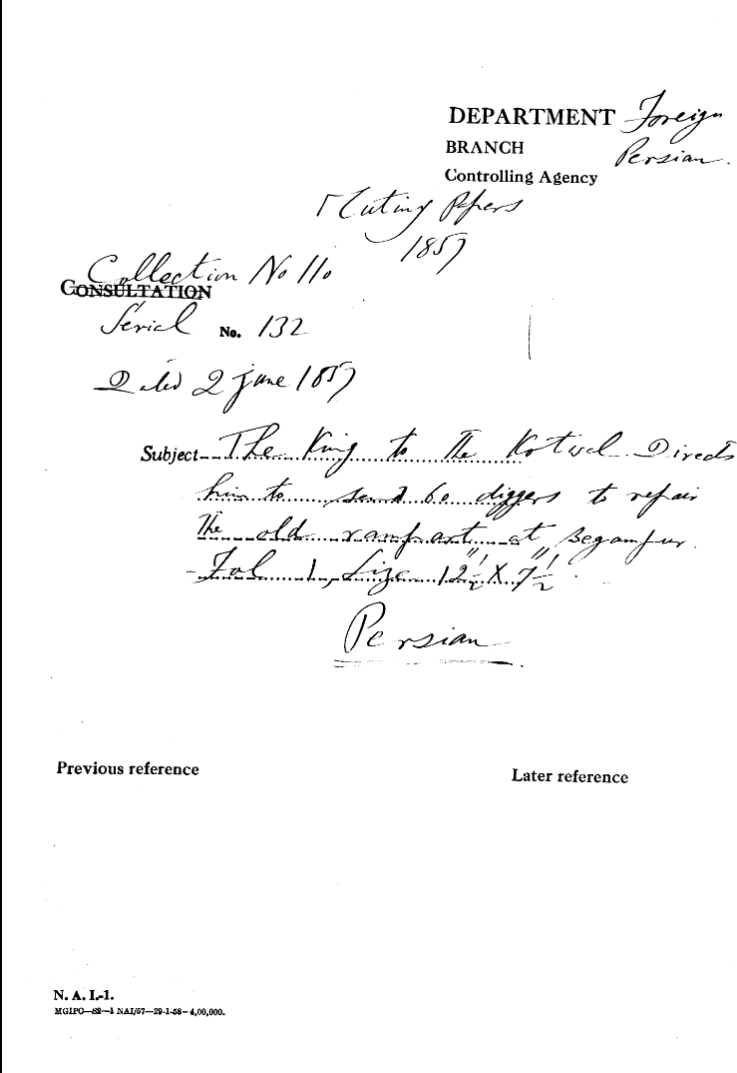 DEPARTMENT Foreign
BRANCH Persian.
Controlling Agency
Mutiny Papers
1857
Collection No 110
CONSULTATION
Serial No. 132
Dated 2 June 1857
Subject The King to The Kotwal Directs
him to send 60 diggers to repair
The old rampart at Begampur.
Fol 1, Size 12½" X 7½"
Persian
Previous reference
Later reference
N. A. I.-1.
MGIPC—S2—1 NAI/57—29-1-58—4,00,000.